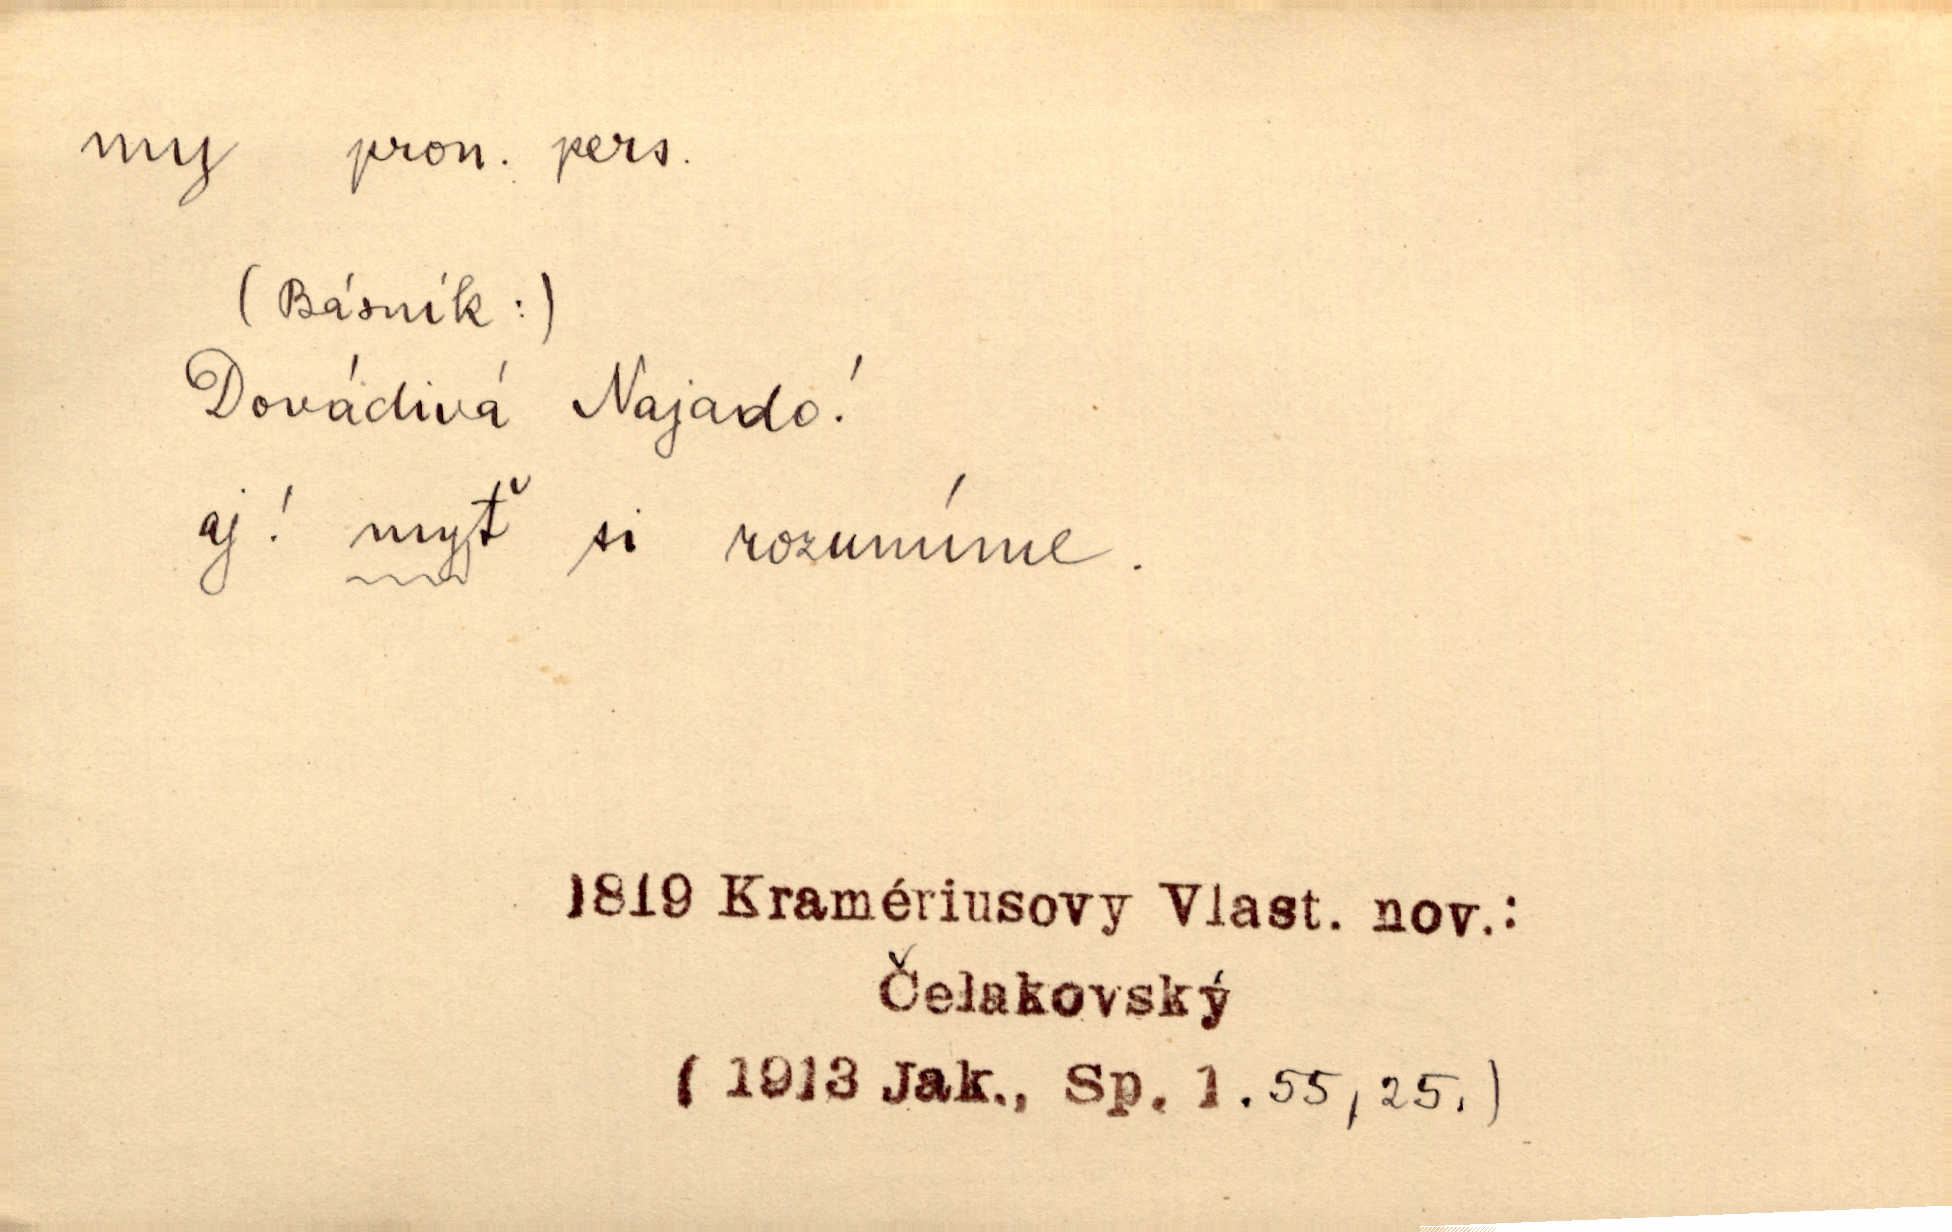 my pron. pers.
(Básník:)
Dovádivá Najado!
aj! myť si rozumíme.
1819 Kramériusovy Vlast. nov.:
Čelakovský
( 1913 Jak., Sp. 1. 55, 25.)